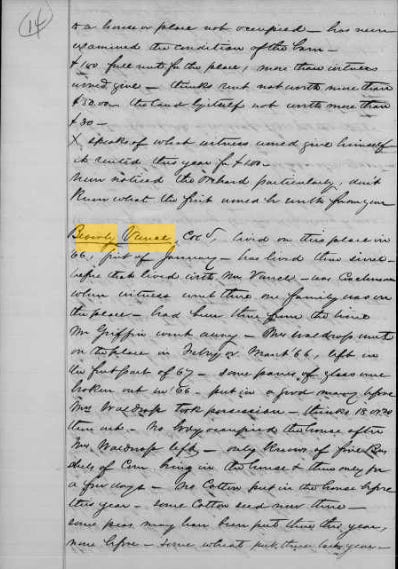 14
to a house or place not occupied – has never
examined the condition of the barn –
$100 full rent for the place, more than witness
would give – thinks rent not worth more than
$50.00 – the land by itself not worth more than
$30 –
X speaks of what witness would give himself
it rented this year for $100 –
never noticed the orchard particularly, don't
know what the fruit would be worth from year
Beverly Vance, Col'd, lived on this place in
'66, first of January – has lived there since –
before that lived with Mrs Vance – was Coachman
when witness went there one family was on
the place – had been there from the time
Mr Griffin went away – Mrs Waldrop went
on the place in Feby or March '66, left in
the first part of '67 – some panes of glass were
broken out in '66 – put in a good many before
Mrs Waldrop took possession – thinks 18 or 20
were out – No body occupied the house after
Mrs Waldrop left – only knows of five Bus
hels of Corn being in the house & then only for
a few days – No Cotton put in the house before
this year – some Cotton seed now there –
some peas may have been put there this year,
none before – some wheat put there last year –